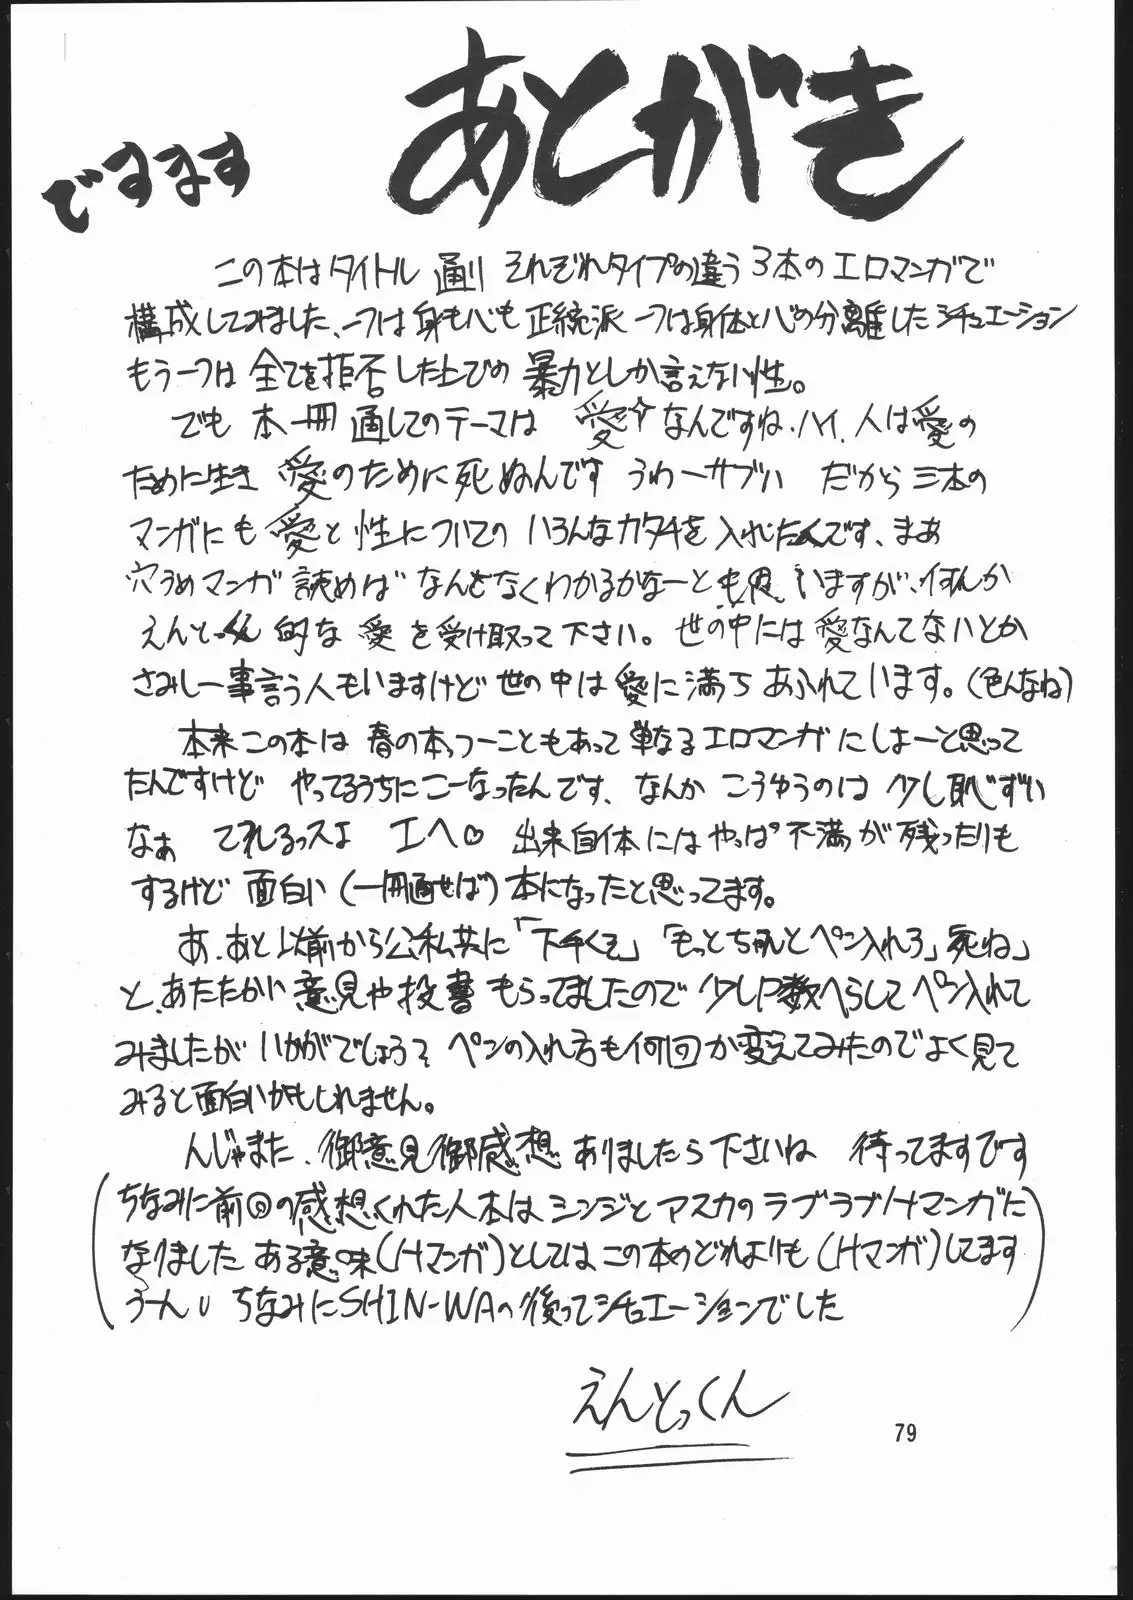 あとがき
ですます
この本はタイトル通り それぞれタイプの違う3本のエロマンガで
構成してみました、一つは身も心も正統派 一つは身体と心の分離したシチュエーション
もう一つは全てを拒否した上での暴力としか言えない性。
でも本一冊通してのテーマは 愛☆なんですね、ハイ、人は愛の
ために生き 愛のために死ぬんです うわーサブい だから三本の
マンガにも愛と性についてのいろんなカタチを入れたんです、まあ
穴うめマンガ読めばなんとなくわかるかなーとも思いますが、何んか
えんとっくん的な愛を受け取って下さい。世の中には愛なんてないとか
さみしー事言う人もいますけど世の中は愛に満ちあふれています。(色んなね)
本来この本は春の本っつーこともあって単なるエロマンガにしよーと思って
たんですけど やってるうちにこーなったんです、なんかこうゆうのは少し恥ずい
なぁ てれるっスよ エヘ♡ 出来自体にはやっぱ不満が残ったりも
するけど面白い(一冊通せば)本になったと思ってます。
あ、あと以前から公私共に「下手くそ」「もっとちゃんとペン入れろ」死ね」
と、あたたかい意見や投書もらってましたので少しP数へらしてペン入れて
みましたがいかがでしょうそ ペンの入れ方も何回か変えてみたのでよく見て
みると面白いかもしれません。
んじゃまた、御意見御感想ありましたら下さいね 待ってますです
(ちなみに前回の感想くれた人本はシンジとアスカのラブラブHマンガに
なりました ある意味(Hマンガ)としてはこの本のどれよりも(Hマンガ)してます
うーん ちなみにSHIN-WAの後ってシチュエーションでした)
えんとっくん
79